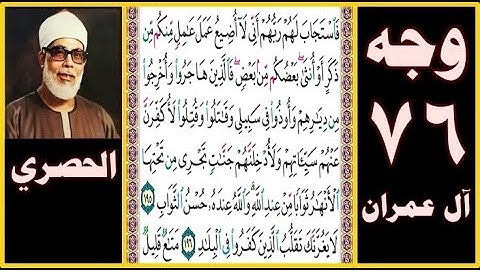 وجه
٧٦
آل عمران
الحصري
فَاسْتَجَابَ لَهُمْ رَبُّهُمْ أَنِّى لَا أُضِيعُ عَمَلَ عَامِلٍ مِّنكُم مِّن
ذَكَرٍ أَوْ أُنثَىٰ بَعْضُكُم مِّنۢ بَعْضٍ فَالَّذِينَ هَاجَرُوا وَأُخْرِجُوا
مِن دِيَارِهِمْ وَأُوذُوا فِى سَبِيلِى وَقَاتَلُوا وَقُتِلُوا لَأُكَفِّرَنَّ
عَنْهُمْ سَيِّئَاتِهِمْ وَلَأُدْخِلَنَّهُمْ جَنَّاتٍ تَجْرِى مِن تَحْتِهَا
الْأَنْهَارُ ثَوَابًا مِّنْ عِندِ اللَّهِ وَاللَّهُ عِندَهُ حُسْنُ الثَّوَابِ ١٩٥
لَا يَغُرَّنَّكَ تَقَلُّبُ الَّذِينَ كَفَرُوا فِى الْبِلَادِ ١٩٦ مَتَاعٌ قَلِيلٌ